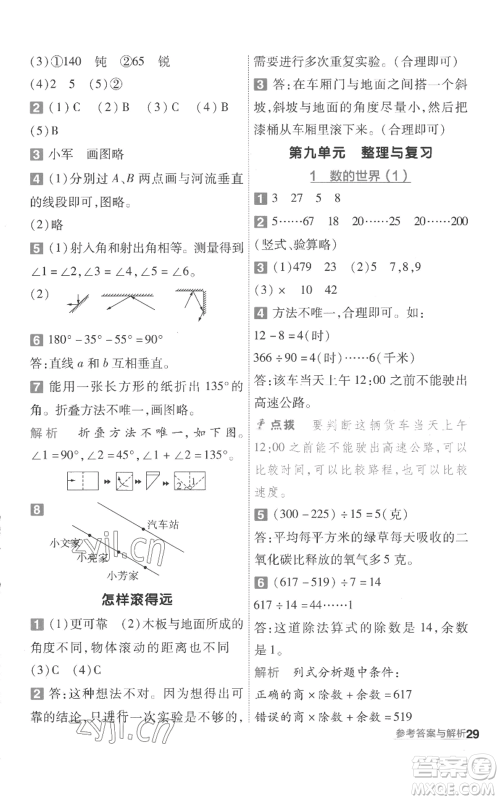 (3)①140　钝　②65　锐
(4)2　5　(5)②
2 (1)C　(2)B　(3)C　(4)B
(5)B
3 小军　画图略
4 (1)分别过A、B两点画与河流垂直
的线段即可,图略。
(2)略
5 (1)射入角和射出角相等。测量得到
∠1=∠2　∠1=∠2　∠1=∠2
(2)
6 180°-35°-55°=90°
答:直线a和b互相垂直。
7 能用一张长方形的纸折出135°的
角。折叠方法不唯一,画图略。
解析　折叠方法不唯一,如图,
∠1=90°　∠2=45°　90°+45°=135°
2 1
8
汽车站
小文家
小亮家
小芳家
怎样滚得远
1 (1)更可靠　(2)木板与地面所成的
角度不同,物体滚动的距离也不同
(3)C　(4)C
2 答:这种想法不对。要获得尽可能可
靠的结论,只进行一次实验是不够的,
需要进行多次重复实验。(合理即可)
3 答:在车厢门与地面之间搭一个斜
坡,斜坡与地面的角度尽量小,然后把
漆桶从车厢里滚下来。(合理即可)
第九单元　整理与复习
1　数的世界(1)
1 3　27　5　8
2 5……67　18　20……20　20……200
(竖式、验算略)
3 (1)479　23　(2)5　7,8,9
(3)×　10　42
4 方法不唯一,合理即可。如:
12-8=4(时)
366÷90=4(时)……6(千米)
答:该车当天上午12:00之前不能驶出
高速公路。
点拨　要判断这辆货车当天上午
12:00之前能否驶出高速公路,可以
比较时间,可以比较路程,也可以比
较速度。
5 (300-225)÷15=5(克)
答:平均每平方米的绿草每天吸收的二
氧化碳比释放的氧气多5克。
6 (617-519)÷(21-14)=14
617÷14=44……1
答:这道除法算式的除数是14,余
数是1。
解析　列式分析题中条件:
正确的商×除数+余数=617
错误的商×除数+余数=519
参考答案与解析29
zyjl.cn
zyjl.cn
答案圈
MXQE.COM